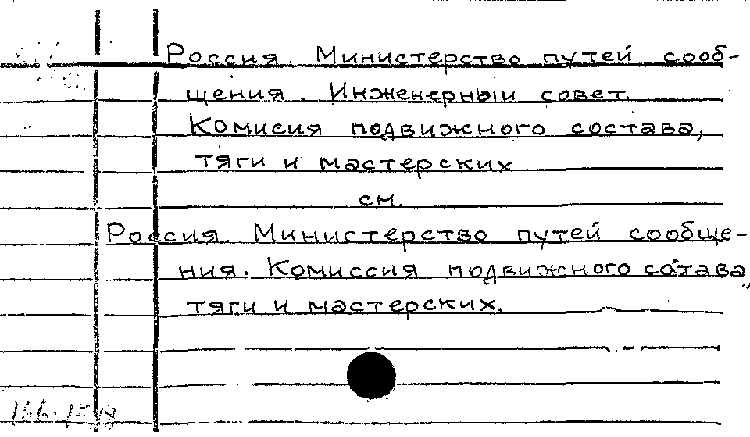 Россия. Министерство путей сооб-
щения. Инженерный совет.
Комисия подвижного состава,
тяги и мастерских
см.
Россия. Министерство путей сообще-
ния. Комиссия подвижного сотава,
тяги и мастерских.